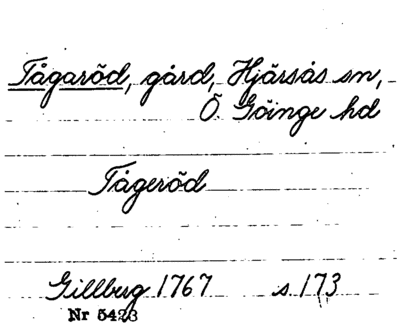 Tågaröd, gård, Hjärsås sn,
Ö. Göinge hd
Tågeröd
Gillberg 1767 s. 173
Nr 5423